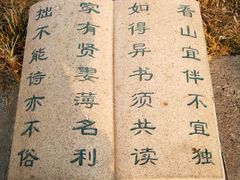 看山宜伴不宜独
如得异书须共读
家有贤妻薄名利
拙不能诗亦不俗